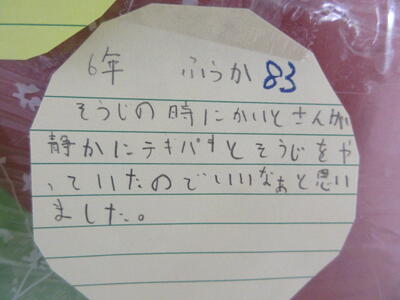 6年 ふうか 83
そうじの時にかいとさんが
静かにテキパキとそうじをや
っていたのでいいなぁと思い
ました。